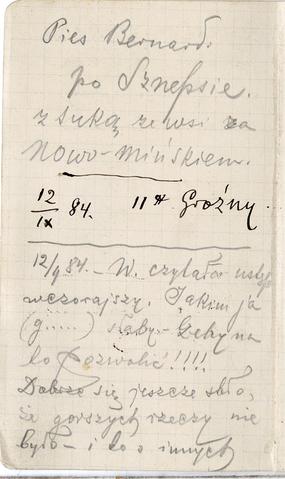 Pies Bernard.
po Sznepsie.
z suką ze wsi za
Nowo-Mińskiem.
12/IX 84. 11 H Groźny.
12/9 84. – W. czytała ustęp
wczorajszy. Jakim ja
(g.....) słaby – Żeby na
to pozwolić!!!!
Dobrze się jeszcze stało,
że gorszych rzeczy nie
było – i to o innych